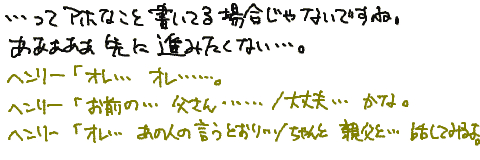 …って アホなこと 書いてる 場合じゃないですね。
あああああ 先に 進みたくない…。
ヘンリー「オレ… オレ……。
ヘンリー「お前の… 父さん……/大丈夫… かな。
ヘンリー「オレ… あの人の言うとおり…ちゃんと 親父と… 話してみるよ